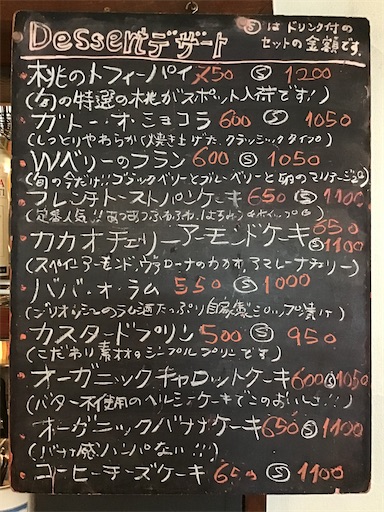 Dessert デザート
Ⓢ は ドリンク付の
セットの金額です。
桃のトフィーパイ 750 Ⓢ 1200
(旬の特選の桃がスポット入荷です!!)
ガトー・オ・ショコラ 600 Ⓢ 1050
(しっとりやわらかく焼き上げた、クラッシックタイプ)
Wベリーのフラン 600 Ⓢ 1050
(旬の今だけ!! ブラックベリーとブルーベリーと卵のマリアージュ)
フレンチトーストパンケーキ 650 Ⓢ 1100
(定番人気!! あつあつふわふわ、はちみつ
カカオチェリーアーモンドケーキ 650 Ⓢ 1100
(スペインアーモンド、ヴァローナのカカオ、アマレーナチェリー)
ババ・オ・ラム 550 Ⓢ 1000
(ブリオッシュのラム酒たっぷり自家製シロップ漬け)
カスタードプリン 500 Ⓢ 950
(こだわり素材のシンプルプリンです)
オーガニックキャロットケーキ 600 Ⓢ 1050
(バター不使用のヘルシーケーキでこのおいしさ!!)
オーガニックバナナケーキ 650 Ⓢ 1100
(バナナ感ハンパない!!!)
コーヒーチーズケーキ 650 Ⓢ 1100